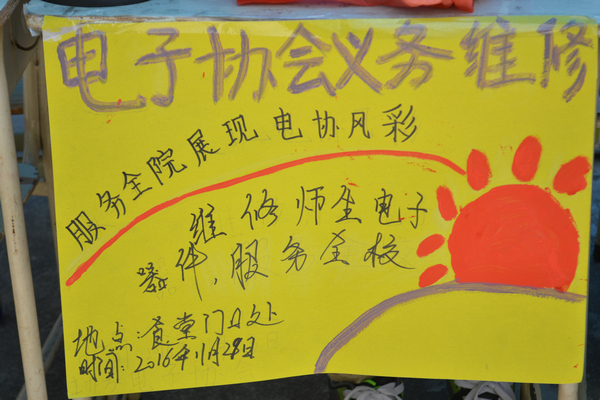 电子协会义务维修
服务全院展现电协风彩
维修师生电子
器件,服务全校
地点:食堂门口处
时间:2016年11月28日